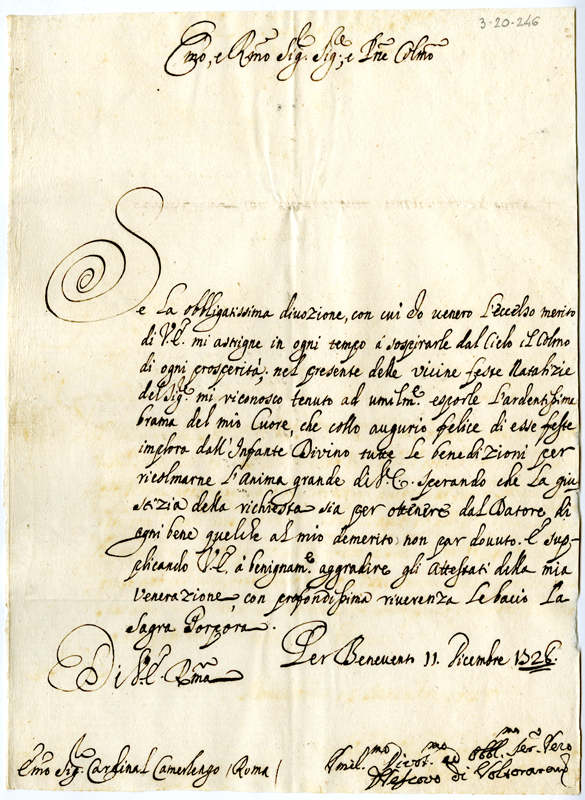 3-20-246
Emo, e Rmo Sig.r Sig.re, e Pne Colmo
Se La obbligatissima diuozione, con cui Io venero L'eccelso merito
di V.E. mi astrigne in ogni tempo á sospirarle dal Cielo il Colmo
di ogni prosperità, nel presente delle vicine feste Natalizie
del Sig.re mi riconosco tenuto ad umilm.e esporle L'ardentissima
brama del mio Cuore, che collo augurio felice di esse feste
implora dall'Infante Divino tutte le benedizioni per
ricolmarne L'Anima grande di V.E. sperando che La giu
stizia della richiesta sia per ottenere dal Datore di
ogni bene quelche al mio demerito non par douuto. E sup-
plicando V.E. á benignam.e aggradire gli Attestati della mia
Venerazione, con profondissima riuerenza Le bacio La
Sagra Porpora.
Di V.E. Rma
Per Benevento 11. Dicembre 1326.
Emo Sig.r Cardinal Camerlengo (Roma)
Vmil.mo Divot.mo ed Obbl.mo Ser.re Vero
Vescovo di